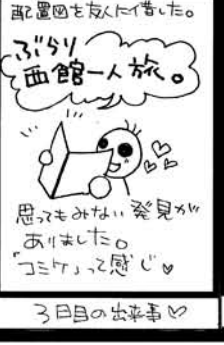 配置図を友人に借した。
ぶらり
西館一人旅。
思ってもみない発見が
ありました。
「コミケ」って感じ♡
3日目の出来事♡